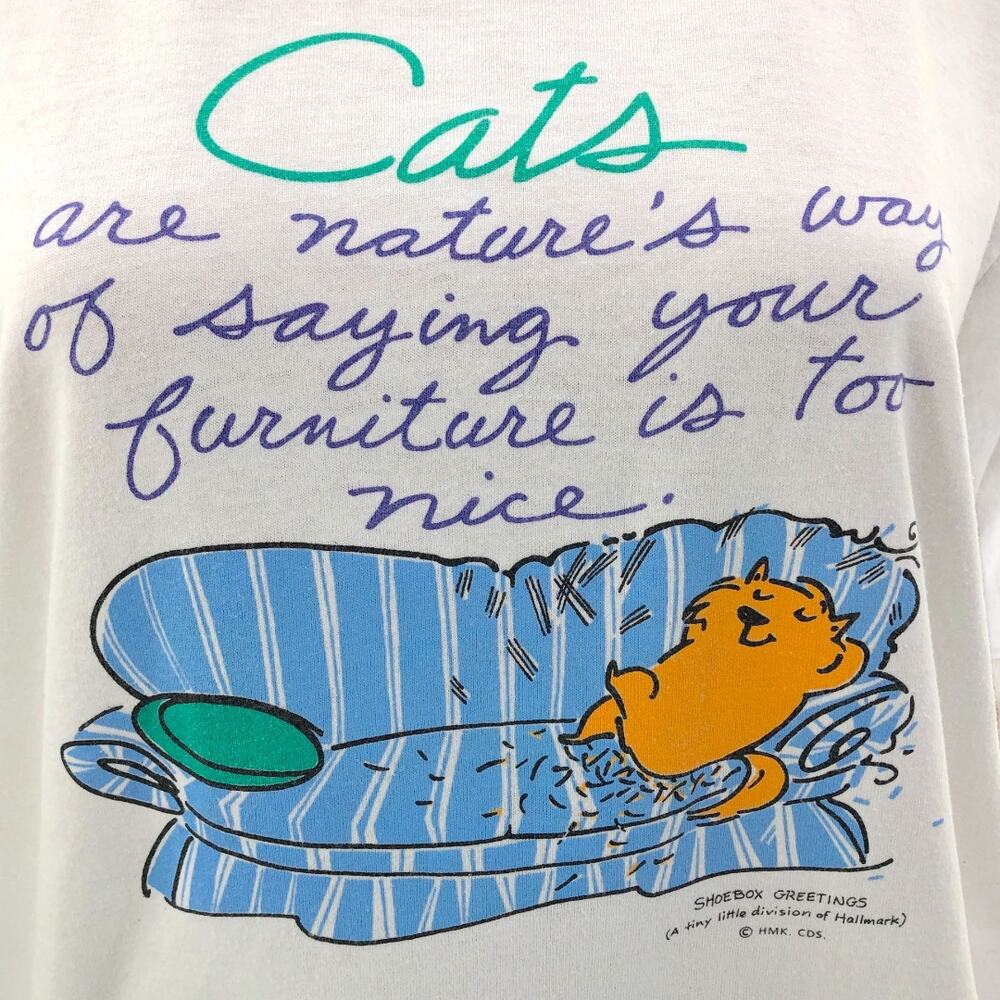 Cats
are nature's way
of saying your
furniture is too
nice.
SHOEBOX GREETINGS
(A tiny little division of Hallmark)
© HMK. CDS.